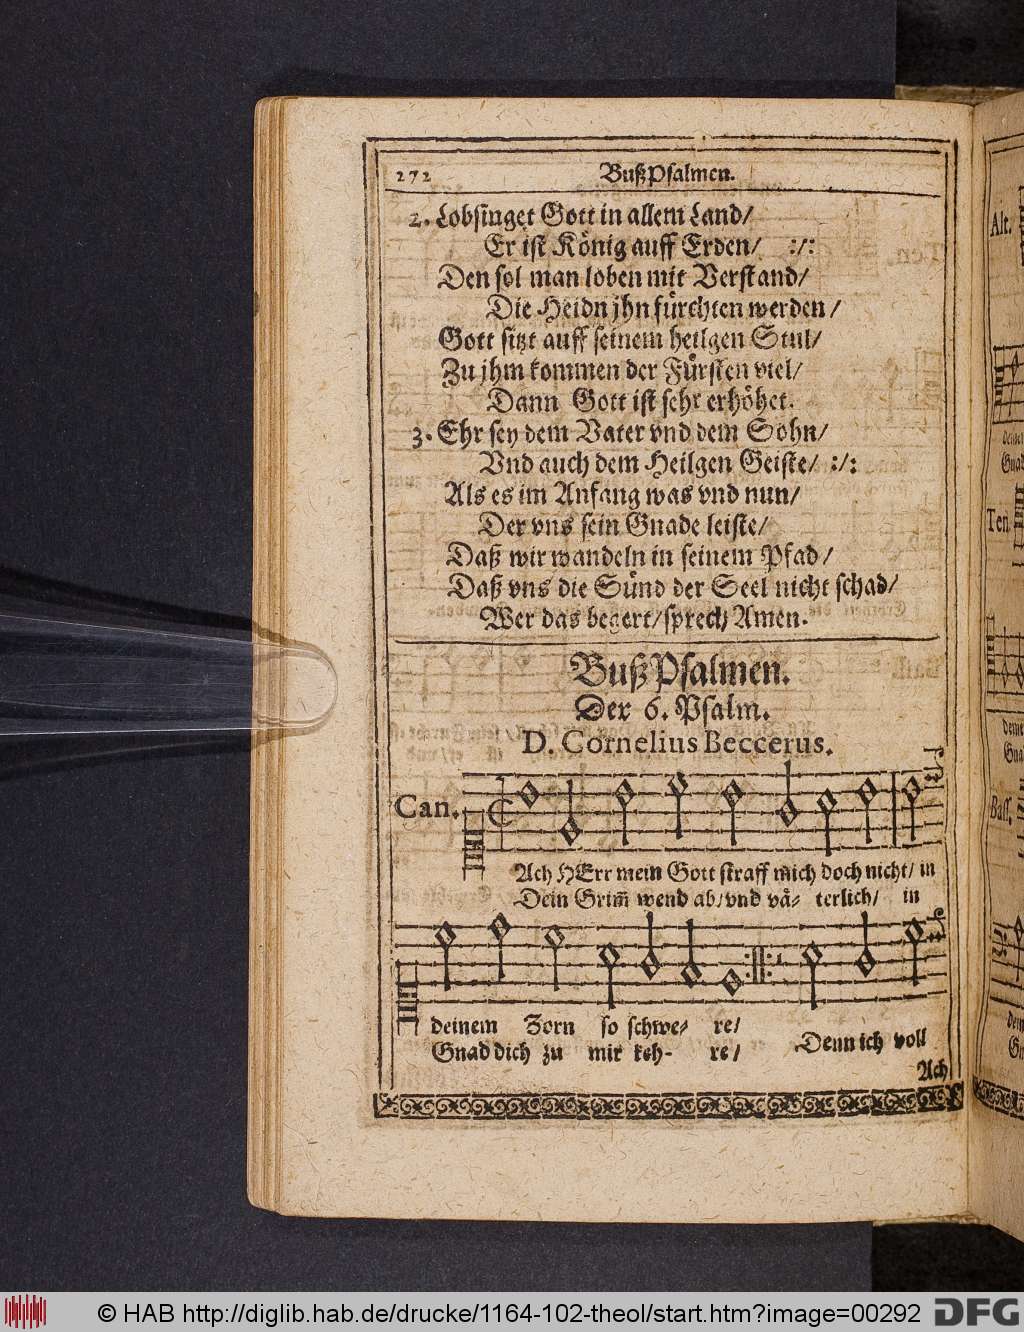 272 BußPsalmen.
2. Lobsinget Gott in allem Land/
Er ist König auff Erden/ :/:
Den sol man loben mit Verstand/
Die Heidn jhn fürchten werden/
Gott sitzt auff seinem heilgen Stul/
Zu jhm kommen der Fürsten viel/
Dann Gott ist sehr erhöhet.
3. Ehr sey dem Vater vnd dem Sohn/
Vnd auch dem Heilgen Geiste/ :/:
Als es im Anfang was vnd nun/
Der vns sein Gnade leiste/
Daß wir wandeln in seinem Pfad/
Daß vns die Sünd der Seel nicht schad/
Wer das begert/sprech Amen.
BußPsalmen.
Der 6. Psalm.
D. Cornelius Beccerus.
Can.
Ach HErr mein Gott straff mich doch nicht/ in
Dein Grim̃ wend ab/vnd vä- terlich/ in
deinem Zorn so schwe- re/
Gnad dich zu mir keh- re/ Denn ich voll
Ach
Alt.
Ten
Bass.
© HAB http://diglib.hab.de/drucke/1164-102-theol/start.htm?image=00292 DFG